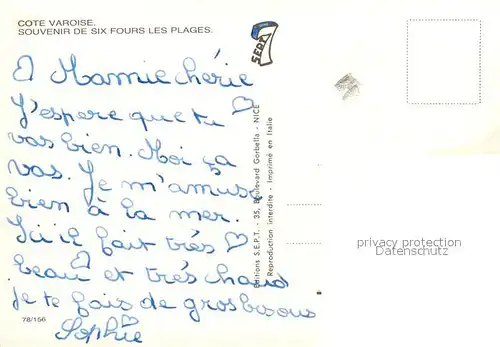 COTE VAROISE.
SOUVENIR DE SIX FOURS LES PLAGES.
SEPT
A Mamie chérie
J'espere que tu
vas bien. Moi ça
vas. Je m'amuse
bien à la mer.
Ici il fait trés
beau et trés chaud
je te fais de gros bisous
Sophie
78/156
Editions S.E.P.T. - 35, Boulevard Gorbella - NICE
Reproduction interdite - Imprimé en Italie
privacy protection
Datenschutz